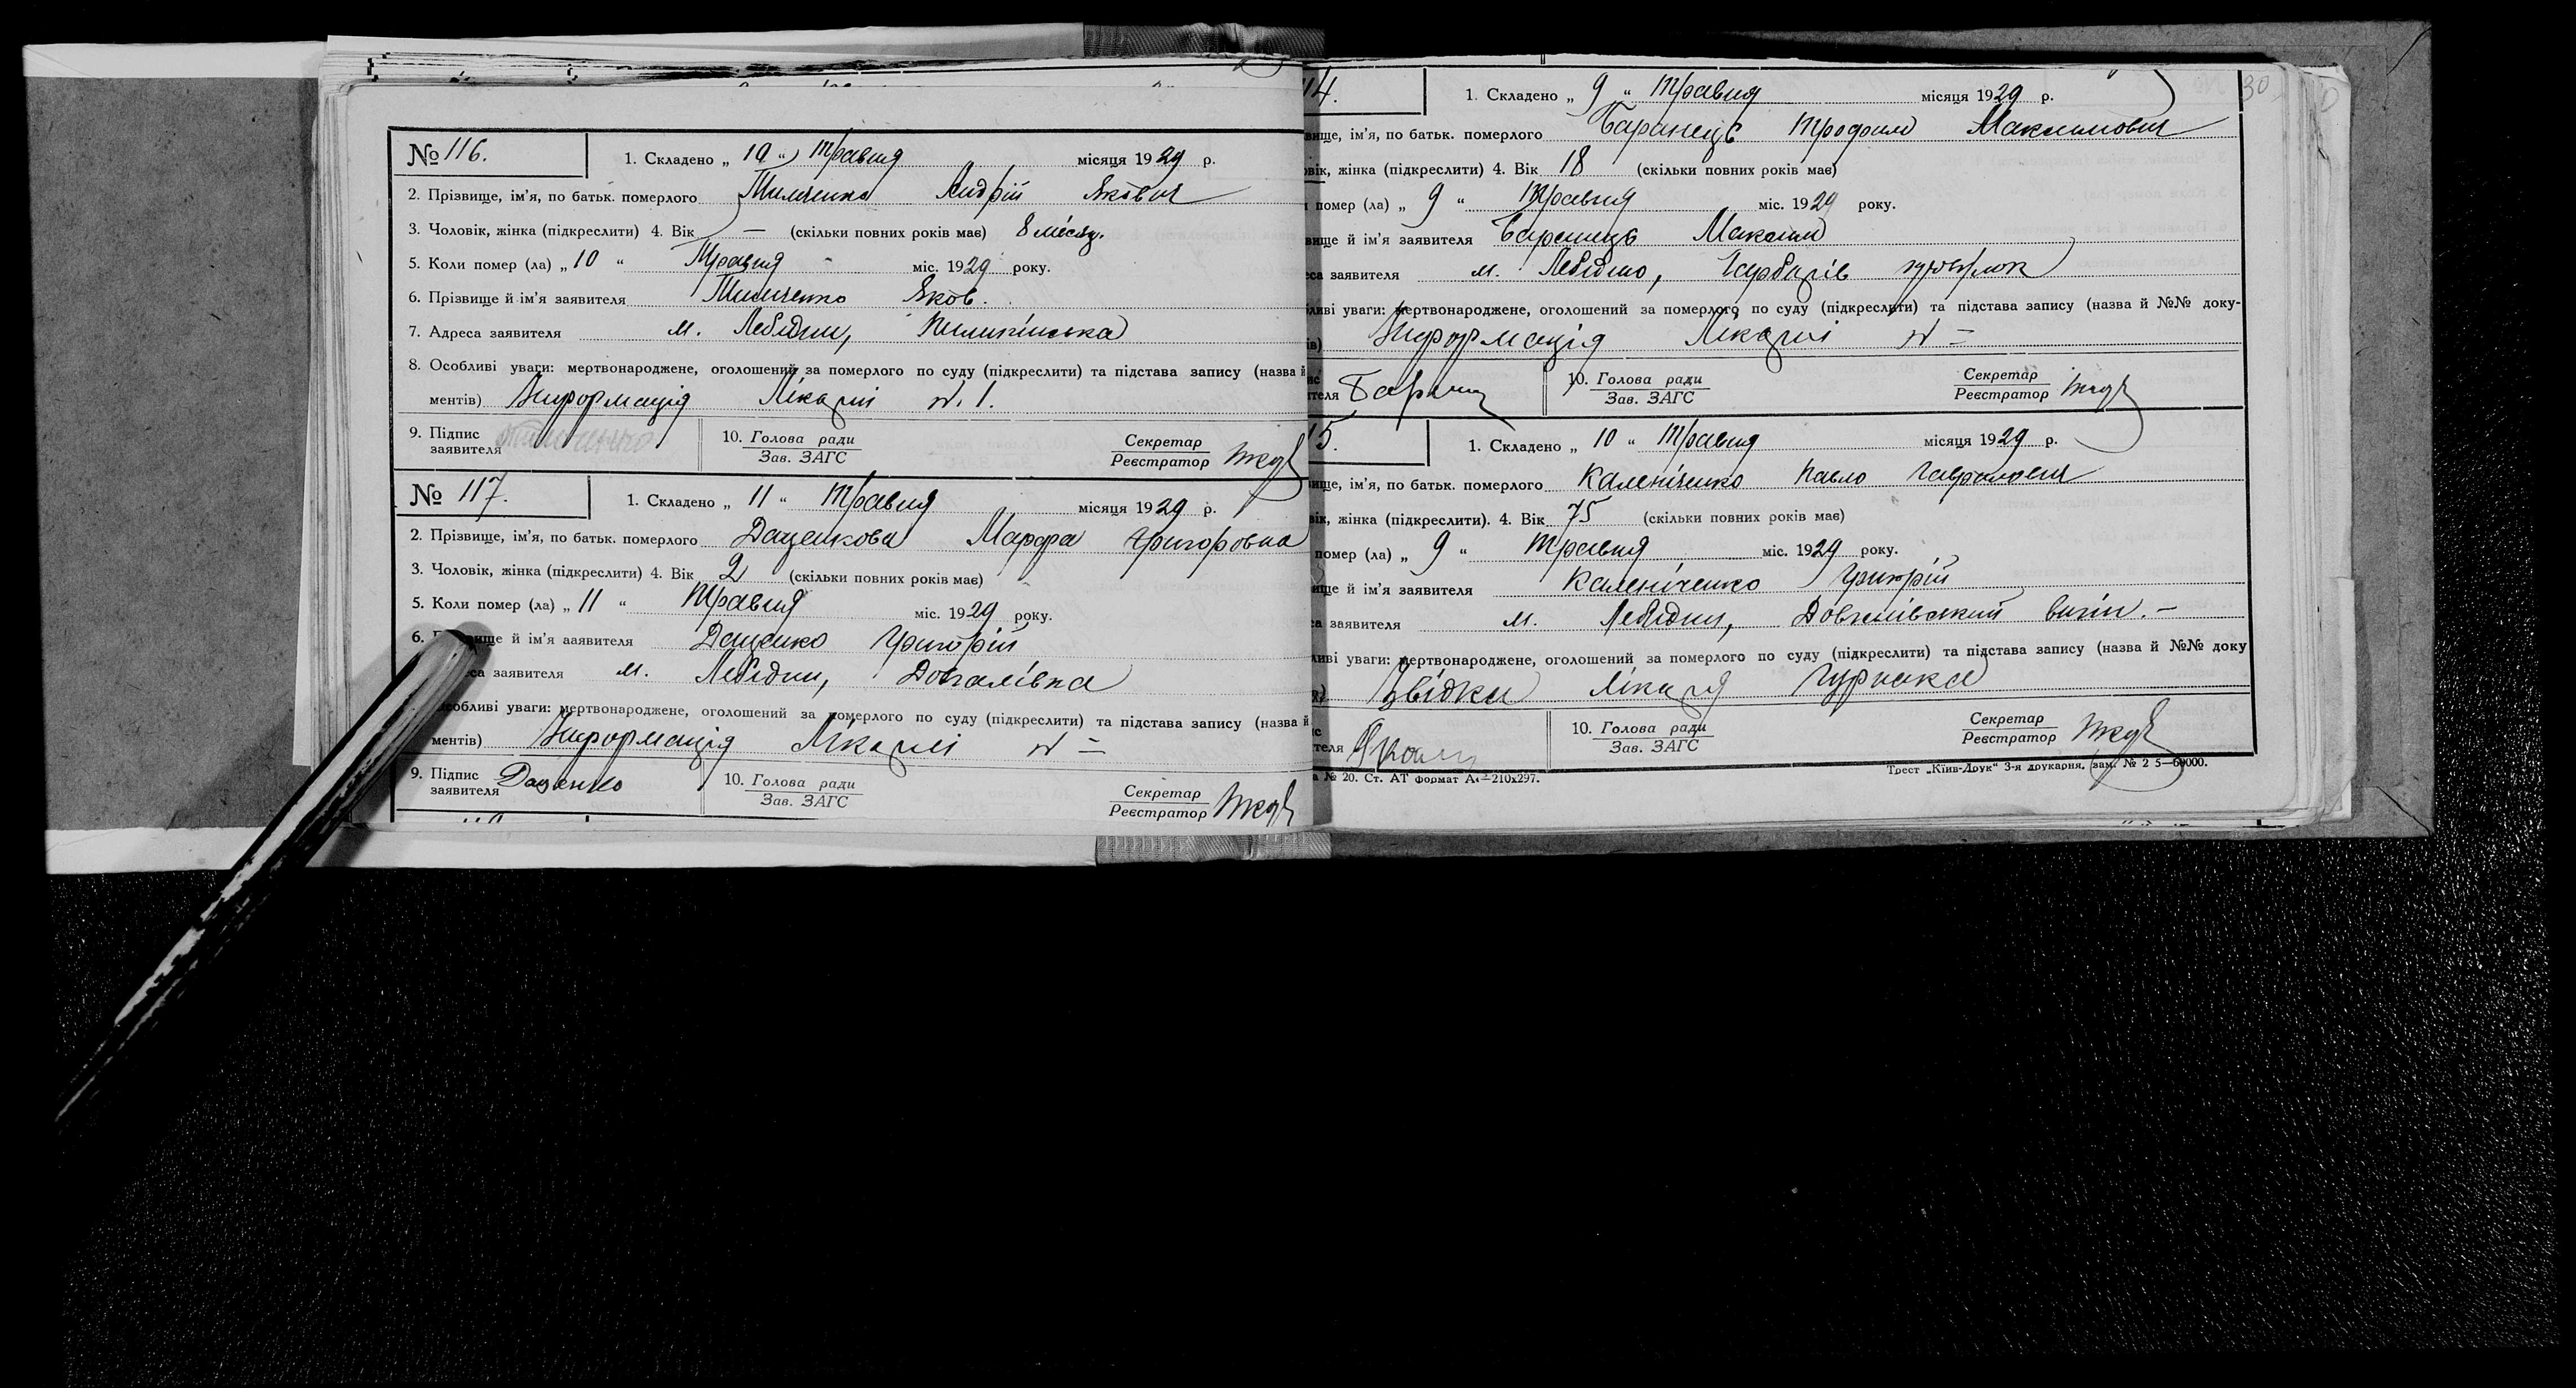 № 116. 1. Складено „ 10 “ Травня місяця 1929 р.
2. Прізвище, ім'я, по батьк. померлого Тимченко Андрій Якович
3. Чоловік, жінка (підкреслити) 4. Вік — (скільки повних років має) 8 місяц.
5. Коли помер (ла) „ 10 “ Травня міс. 1929 року.
6. Прізвище й ім'я заявителя Тимченко Яков.
7. Адреса заявителя м. Лебідин,
8. Особливі уваги: мертвонароджене, оголошений за померлого по суду (підкреслити) та підстава запису (назва й
ментів) Информація Лікарні № 1.
9. Підпис заявителя 10. Голова ради Зав. ЗАГС Секретар Реєстратор
№ 117. 1. Складено „ 11 “ Травня місяця 1929 р.
2. Прізвище, ім'я, по батьк. померлого Даценкова Марфа Григоровна
3. Чоловік, жінка (підкреслити) 4. Вік 2 (скільки повних років має)
5. Коли помер (ла) „ 11 “ Травня міс. 1929 року.
6. й ім'я заявителя Даценко Григорій
заявителя м. Лебідин, Довгалівка
особливі уваги: мертвонароджене, оголошений за померлого по суду (підкреслити) та підстава запису (назва й
ментів) Информація Лікарні № =
9. Підпис заявителя Даценко 10. Голова ради Зав. ЗАГС Секретар Реєстратор
30
14. 1. Складено „ 9 “ Травня місяця 1929 р.
вище, ім'я, по батьк. померлого Баранець Трофим Максимович
вік, жінка (підкреслити) 4. Вік 18 (скільки повних років має)
помер (ла) „ 9 “ Травня міс. 1929 року.
вище й ім'я заявителя Баранець Максим
са заявителя м. Лебідин,
ливі уваги: мертвонароджене, оголошений за померлого по суду (підкреслити) та підстава запису (назва й №№ доку-
ів) Информація Лікарні № =
теля 10. Голова ради Зав. ЗАГС Секретар Реєстратор
15. 1. Складено „ 10 “ Травня місяця 1929 р.
вище, ім'я, по батьк. померлого Каленіченко Павло Гаврилович
вік, жінка (підкреслити). 4. Вік 75 (скільки повних років має)
помер (ла) „ 9 “ Травня міс. 1929 року.
ище й ім'я заявителя Каленіченко Григорій
са заявителя м. Лебідин, вигін. —
ливі уваги: мертвонароджене, оголошений за померлого по суду (підкреслити) та підстава запису (назва й №№ доку
Звідка лікаря
теля 10. Голова ради Зав. ЗАГС Секретар Реєстратор
№ 20. Ст. АТ формат А4—210х297. Трест „Київ-Друк“ 3-я друкарня, зам. № 2 5—60000.